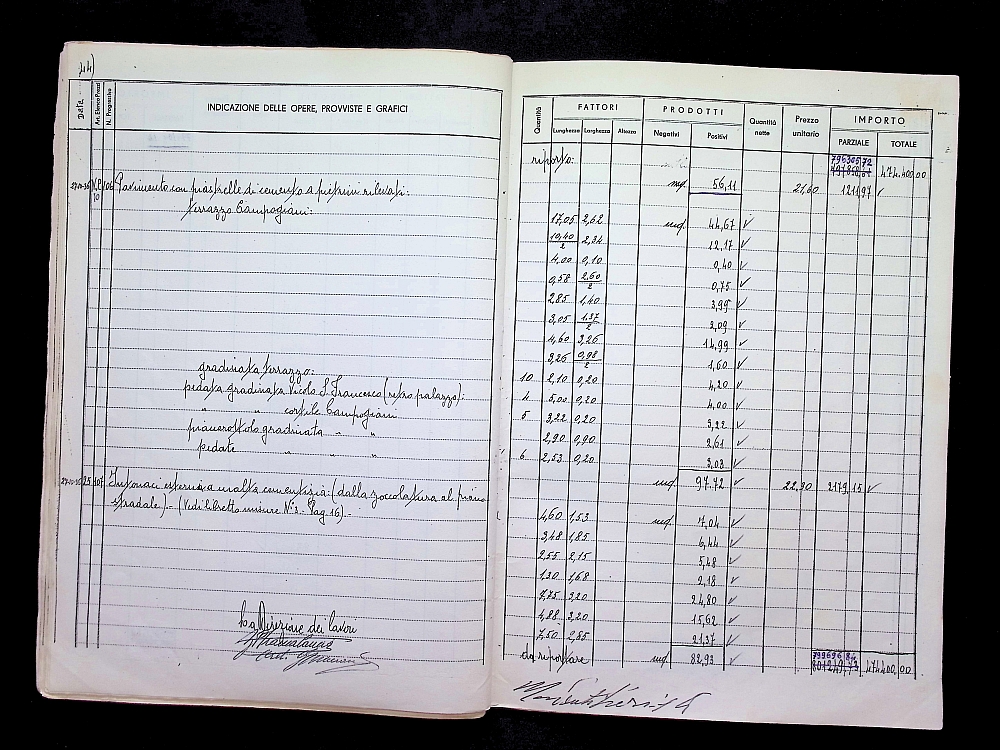 44)
Data
Art. Elenco Prezzi
N. Progressivo
INDICAZIONE DELLE OPERE, PROVVISTE E GRAFICI
106 Pavimento con piastrelle di cemento a pietrini rilevati:
terrazzo Campogiani:
gradinata terrazzo:
pedata gradinata Vicolo S. Francesco (retro palazzo):
" " cortile Campogiani
pianerottolo gradinata " "
pedate " "
25 107 Intonaci esterni a malta cementizia: (dalla zoccolatura al piano
stradale) - (Vedi libretto misure N° 2 - Pag. 16) -
La Direzione dei lavori
Quantità
FATTORI
PRODOTTI
Quantità nette
Prezzo unitario
IMPORTO
Lunghezza Larghezza Altezza
Negativi Positivi
PARZIALE TOTALE
riporto: 796305,72 474.400,00
mq. 56,11 21,60 1211,97
17,05 2,62 mq. 44,67
10,40/2 2,34 12,17
4,00 0,10 0,40
0,58 2,60/2 0,75
2,85 1,40 3,99
3,05 1,37/2 2,09
4,60 3,26 14,99
3,26 0,98/2 1,60
10 2,10 0,20 4,20
4 5,00 0,20 4,00
5 3,22 0,20 3,22
2,90 0,90 2,61
6 2,53 0,20 3,03
mq. 97,72 22,30 2179,15
4,60 1,53 mq. 7,04
3,48 1,85 6,44
2,55 2,15 5,48
1,30 1,68 2,18
7,75 3,20 24,80
4,88 3,20 15,62
7,50 2,85 21,37
da riportare mq. 82,93 799696,84 474.400,00